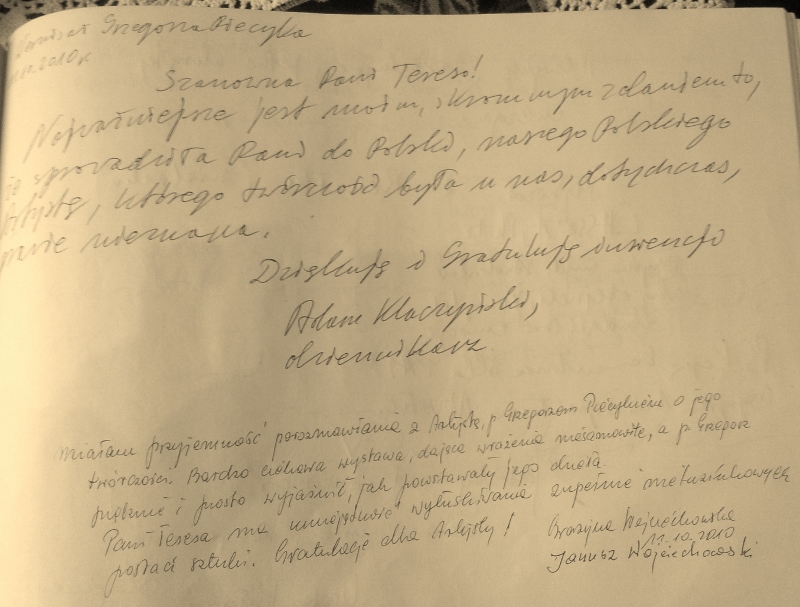 Wernisaż Grzegorza Piecyka
2010 r.
Szanowna Pani Tereso!
Najważniejsze jest moim, skromnym zdaniem to,
że sprowadziła Pani do Polski, naszego Polskiego
Artystę, którego twórczość była u nas, dotychczas,
prawie nieznana.
Dziękuję i Gratuluję inwencji
Adam Kłaczyński,
dziennikarz
Miałam przyjemność porozmawiania z Artystą, p. Grzegorzem Pieczykiem o jego
twórczości. Bardzo ciekawa wystawa, dająca wrażenia niesamowite, a p. Grzegorz
pięknie i prosto wyjaśnił, jak powstawały jego dzieła.
Pani Teresa ma umiejętność wyłuskiwania zupełnie nietuzinkowych
postaci sztuki. Gratulacje dla Artysty! Grażyna Wojciechowska
11.10.2010
Janusz Wojciechowski